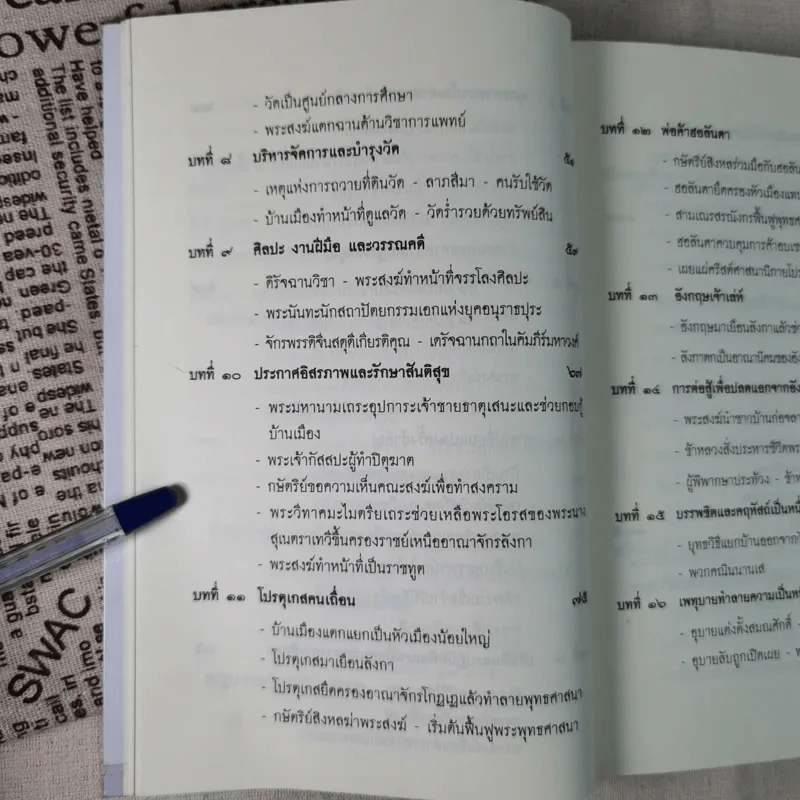 - วัดเป็นศูนย์กลางการศึกษา
- พระสงฆ์แตกฉานด้านวิชาการแพทย์
บทที่ ๘ บริหารจัดการและบำรุงวัด ๕๑
- เหตุแห่งการถวายที่ดินวัด - ลาภสีมา - คนรับใช้วัด
- บ้านเมืองทำหน้าที่ดูแลวัด - วัดร่ำรวยด้วยทรัพย์สิน
บทที่ ๙ ศิลปะ งานฝีมือ และวรรณคดี ๕๙
- ดิรัจฉานวิชา - พระสงฆ์ทำหน้าที่จรรโลงศิลปะ
- พระนันทะนักสถาปัตยกรรมเอกแห่งยุคอนุราธปุระ
- จักรพรรดิจีนสดุดีเกียรติคุณ - เดรัจฉานกถาในคัมภีร์มหาวงศ์
บทที่ ๑๐ ประกาศอิสรภาพและรักษาสันติสุข ๖๗
- พระมหานามเถระอุปการะเจ้าชายธาตุเสนะและช่วยกอบกู้
บ้านเมือง
- พระเจ้ากัสสปะผู้ทำปิตุฆาต
- กษัตริย์ขอความเห็นคณะสงฆ์เพื่อทำสงคราม
- พระวีทาคมะไมตรียเถระช่วยเหลือพระโอรสของพระนาง
สุเนตราเทวีขึ้นครองราชย์เหนืออาณาจักรลังกา
- พระสงฆ์ทำหน้าที่เป็นราชทูต
บทที่ ๑๑ โปรตุเกสคนเถื่อน ๗๕
- บ้านเมืองแตกแยกเป็นหัวเมืองน้อยใหญ่
- โปรตุเกสมาเยือนลังกา
- โปรตุเกสยึดครองอาณาจักรโกฏเฏแล้วทำลายพุทธศาสนา
- กษัตริย์สิงหลฆ่าพระสงฆ์ - เริ่มต้นฟื้นฟูพระพุทธศาสนา
บทที่ ๑๒ พ่อค้าฮอลันดา
- กษัตริย์สิงหลร่วมมือกับฮอลัน
- ฮอลันดายึดครองหัวเมืองแทน
- สามเณรสรณังกรฟื้นฟูพุทธศ
- ฮอลันดาควบคุมการค้าอบเช
- เผยแผ่คริสต์ศาสนานิกายโปร
บทที่ ๑๓ อังกฤษเจ้าเล่ห์
- อังกฤษมาเยือนลังกาแล้วช่
- ลังกาตกเป็นอาณานิคมของอัง
บทที่ ๑๔ การต่อสู้เพื่อปลดแอกจากอัง
- พระสงฆ์นำชาวบ้านก่อจลา
- ข้าหลวงสั่งประหารชีวิตพระ
- ผู้พิพากษาประท้วง - ข้าห
บทที่ ๑๕ บรรพชิตและคฤหัสถ์เป็นหนึ่
- ยุทธวิธีแยกบ้านออกจากวั
- พวกคณินนานเส
บทที่ ๑๖ เพทุบายทำลายความเป็นหนึ
- อุบายแต่งตั้งสมณศักดิ์ -
- อุบายลับถูกเปิดเผย - พ
SWAC
Have helped
The list includes metal o
additional security came States